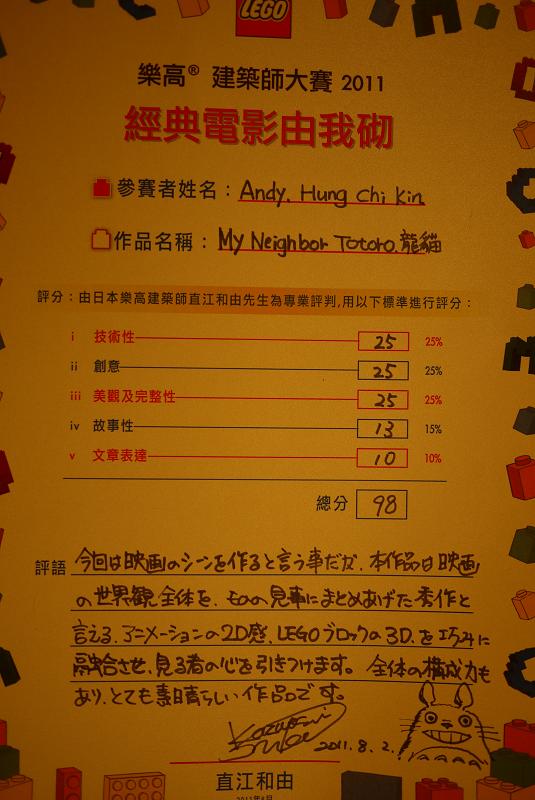 LEGO
樂高® 建築師大賽 2011
經典電影由我砌
參賽者姓名：Andy. Hung Chi Kin
作品名稱：My Neighbor Totoro.龍貓
評分：由日本樂高建築師直江和由先生為專業評判,用以下標準進行評分：
i 技術性 25 25%
ii 創意 25 25%
iii 美觀及完整性 25 25%
iv 故事性 13 15%
v 文章表達 10 10%
總分 98
評語 今回は映画のシーンを作ると言う事だが、本作品は映画
の世界観全体を、ものの見事にまとめあげた秀作と
言える。アニメーションの2D感、LEGOブロックの3D、を巧みに
融合させ、見る者の心を引きつけます。全体の構成力も
あり、とても素晴らしい作品です。
2011.8.2.
直江和由